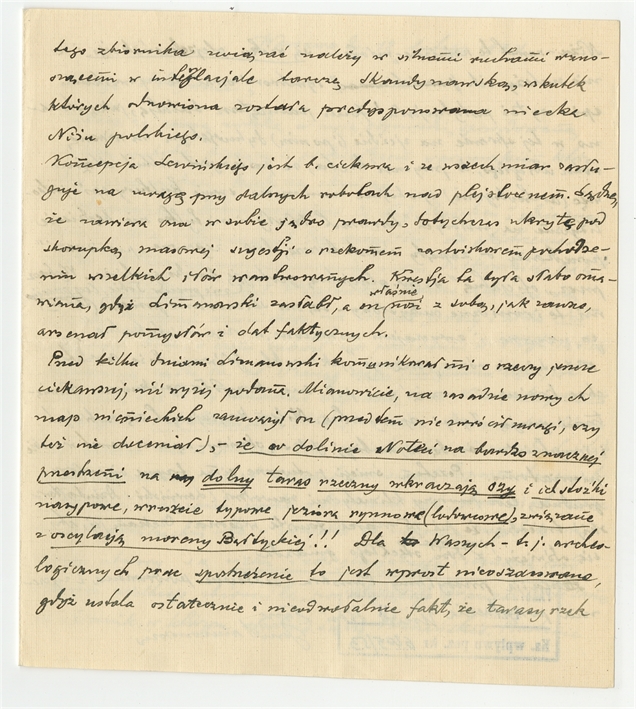 tego zbiornika związać należy w silnemi ruchami wzno-
szącemi w interglacjale tarczę Skandynawską, wskutek
których odnowiona została predysponowana niecka
Niżu polskiego.
Koncepcja Lewińskiego jest b. ciekawa i ze wszech miar zasłu-
guje na uwagę przy dalszych robotach nad plejstocenem. Sądzę,
że zawiera ona w sobie jądro prawdy, dotychczas ukryte pod
skorupką masowej sugestji o rzekomem zastoiskowem pochodze-
niu wszelkich iłów warwowanych. Kwestja ta była słabo oma-
wiana, gdyż Limanowski zasłabł, a on właśnie nosi z sobą, jak zawsze,
arsenał pomysłów i dat faktycznych.
Przed kilku dniami Limanowski komunikował mi o rzeczy jeszcze
ciekawszej, niż wyżej podana. Mianowicie, na zasadzie nowych
map niemieckich zauważył on (przedtem nie zwrócił uwagi, czy
też nie doceniał), - że w dolinie Noteci na bardzo znacznej
przestrzeni na dolny taras rzeczny wkraczają ozy i ich stożki
nasypowe, wreszcie typowe jeziora rynnowe (lodowcowe), związane
z oscylacją moreny Bałtyckiej!!! Dla Waszych - t. j. archeo-
logicznych prac spostrzeżenie to jest wprost nieoszacowane,
gdyż ustala ostatecznie i nieodwołalnie fakt, że tarasy rzek